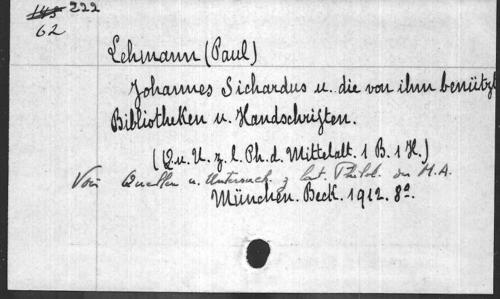 145 222
62
Lehmann (Paul)
Johannes Sichardus u. die von ihm benützt
Bibliotheken u. Handschriften.
(Q. u. U. z. l. Ph. d. Mittelalt. 1 B. 1 H.)
Voir Quellen u. Untersuch. z. lat. Philol. des M.A.
München. Beck. 1912. 8º.